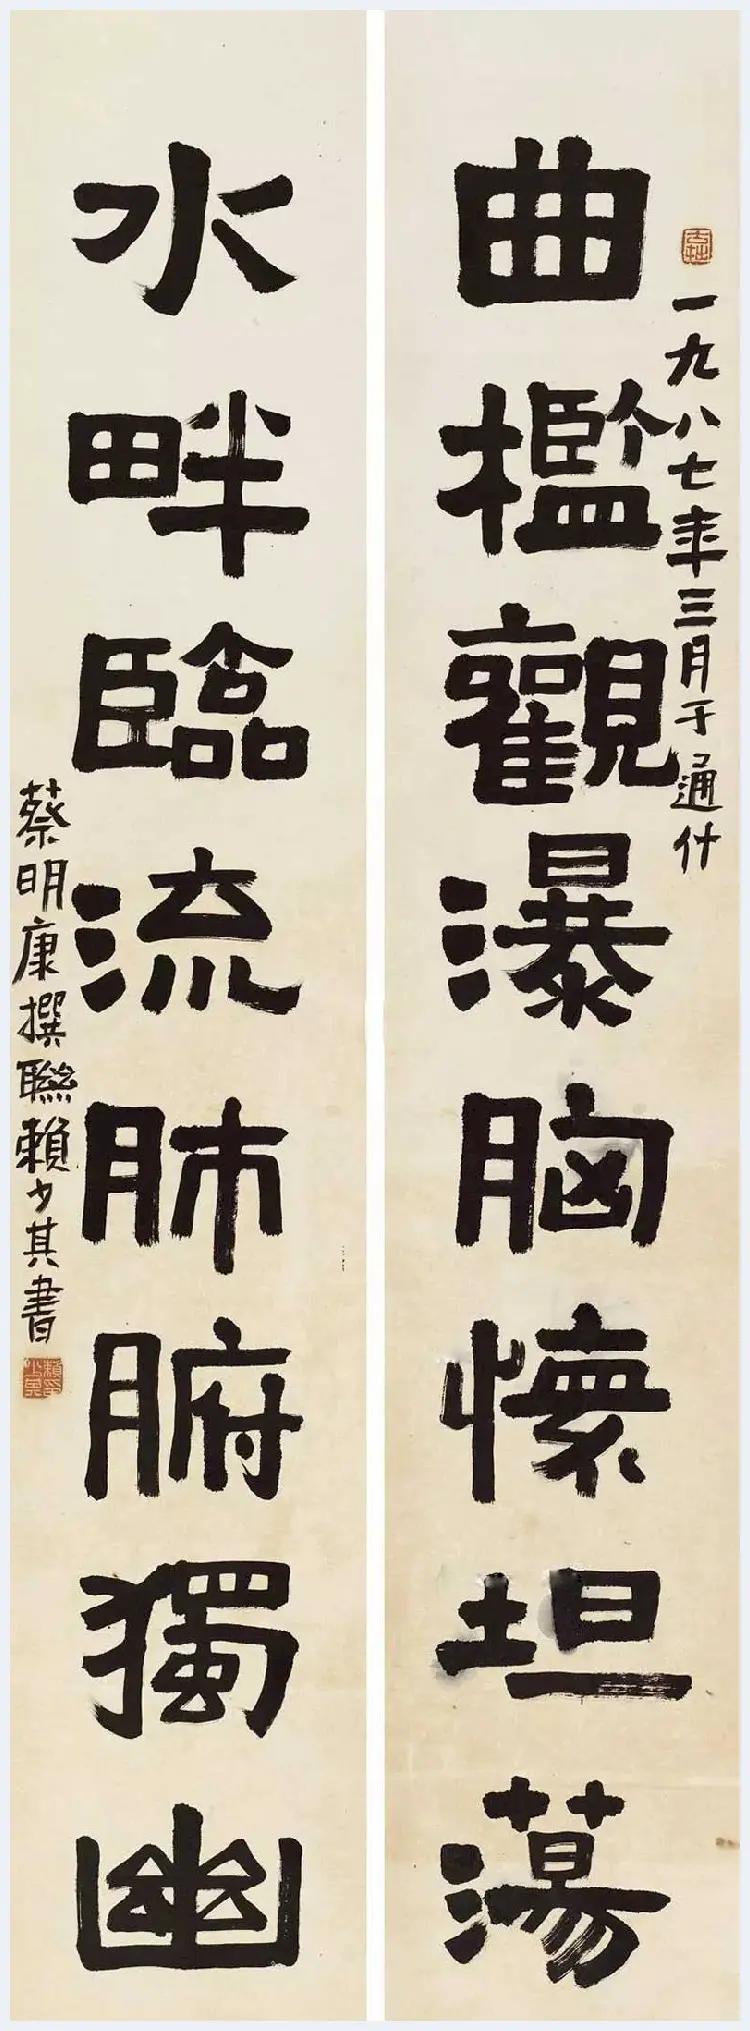 曲檻觀瀑胸懷坦蕩
一九八七年三月于通什
水畔臨流肺腑獨幽
蔡明康撰聯賴少其書